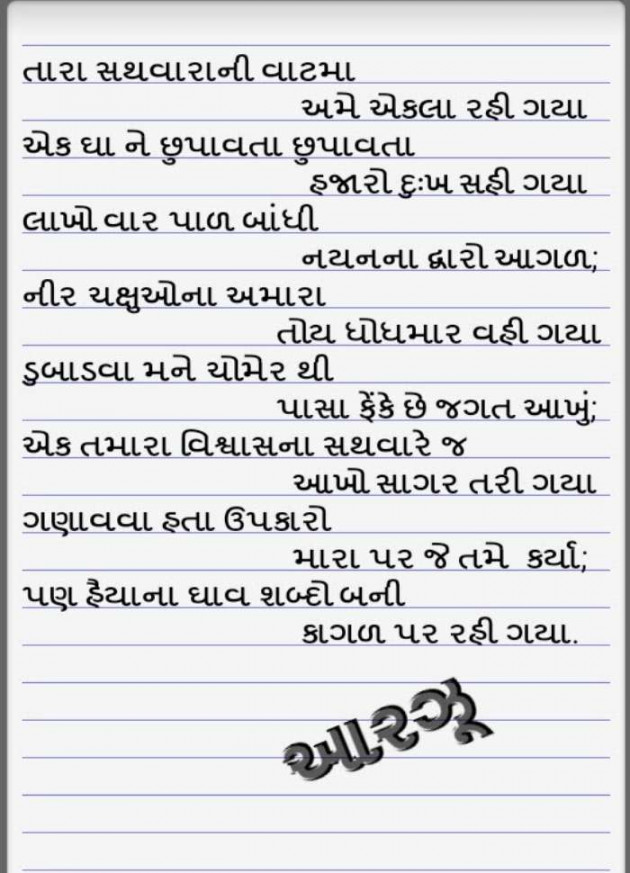 તારા સથવારાની વાટમા
અમે એકલા રહી ગયા
એક ઘા ને છુપાવતા છુપાવતા
હજારો દુઃખ સહી ગયા
લાખો વાર પાળ બાંધી
નયનના દ્વારો આગળ;
નીર ચક્ષુઓના અમારા
તોય ધોધમાર વહી ગયા
ડુબાડવા મને ચોમેર થી
પાસા ફેંકે છે જગત આખું;
એક તમારા વિશ્વાસના સથવારે જ
આખો સાગર તરી ગયા
ગણાવવા હતા ઉપકારો
મારા પર જે તમે કર્યા;
પણ હૈયાના ઘાવ શબ્દો બની
કાગળ પર રહી ગયા.
આરઝૂ